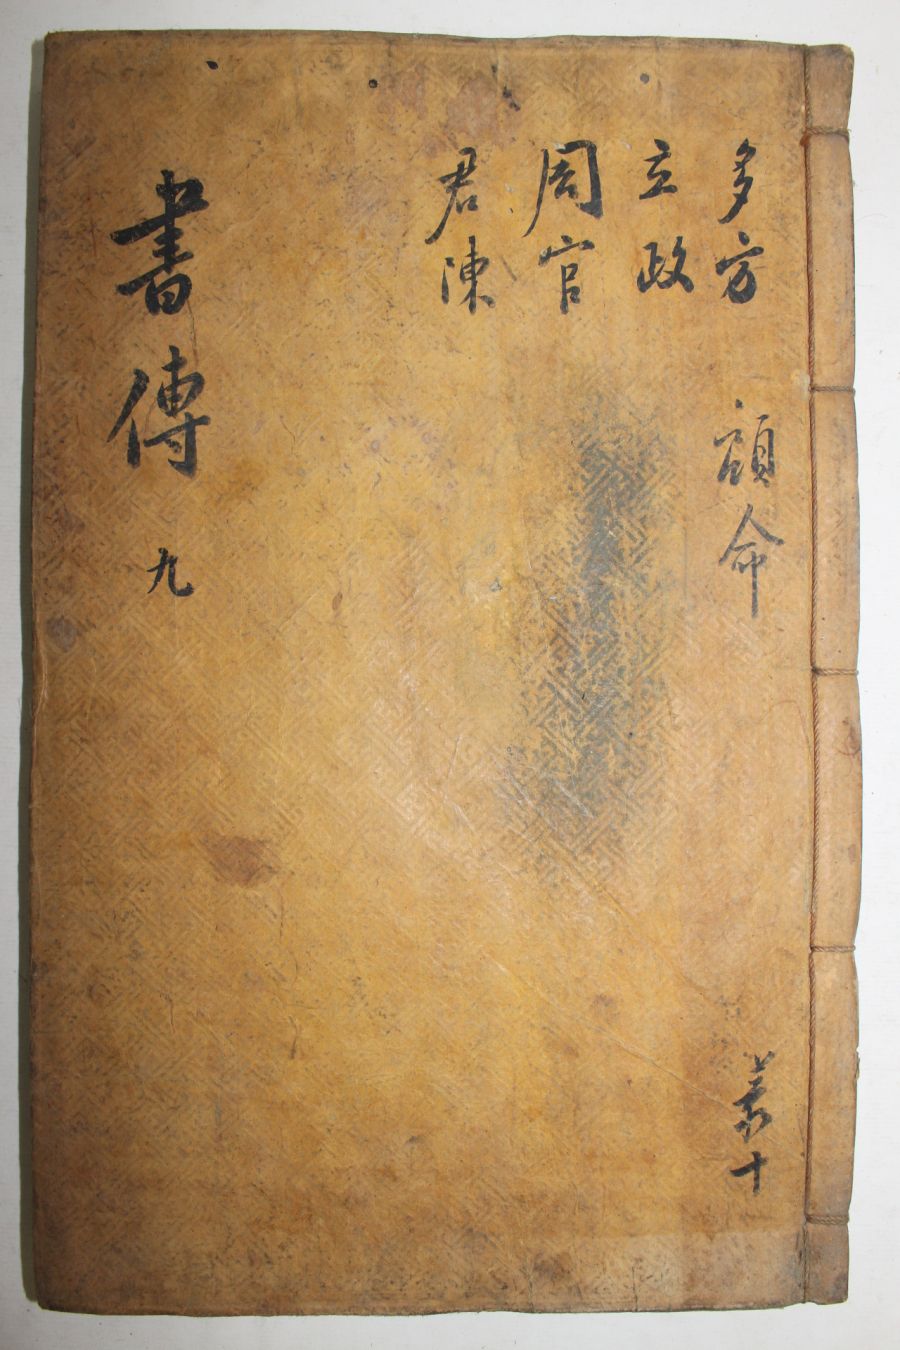 多方 顧命
立政
周官
君陳
書傳 九
共十